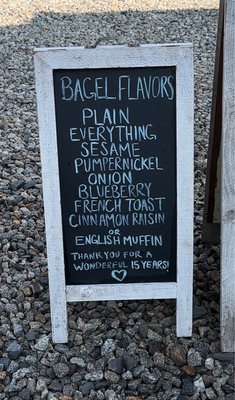 BAGEL FLAVORS
PLAIN
EVERYTHING
SESAME
PUMPERNICKEL
ONION
BLUEBERRY
FRENCH TOAST
CINNAMON RAISIN
OR
ENGLISH MUFFIN
THANK YOU FOR A
WONDERFUL 15 YEARS!